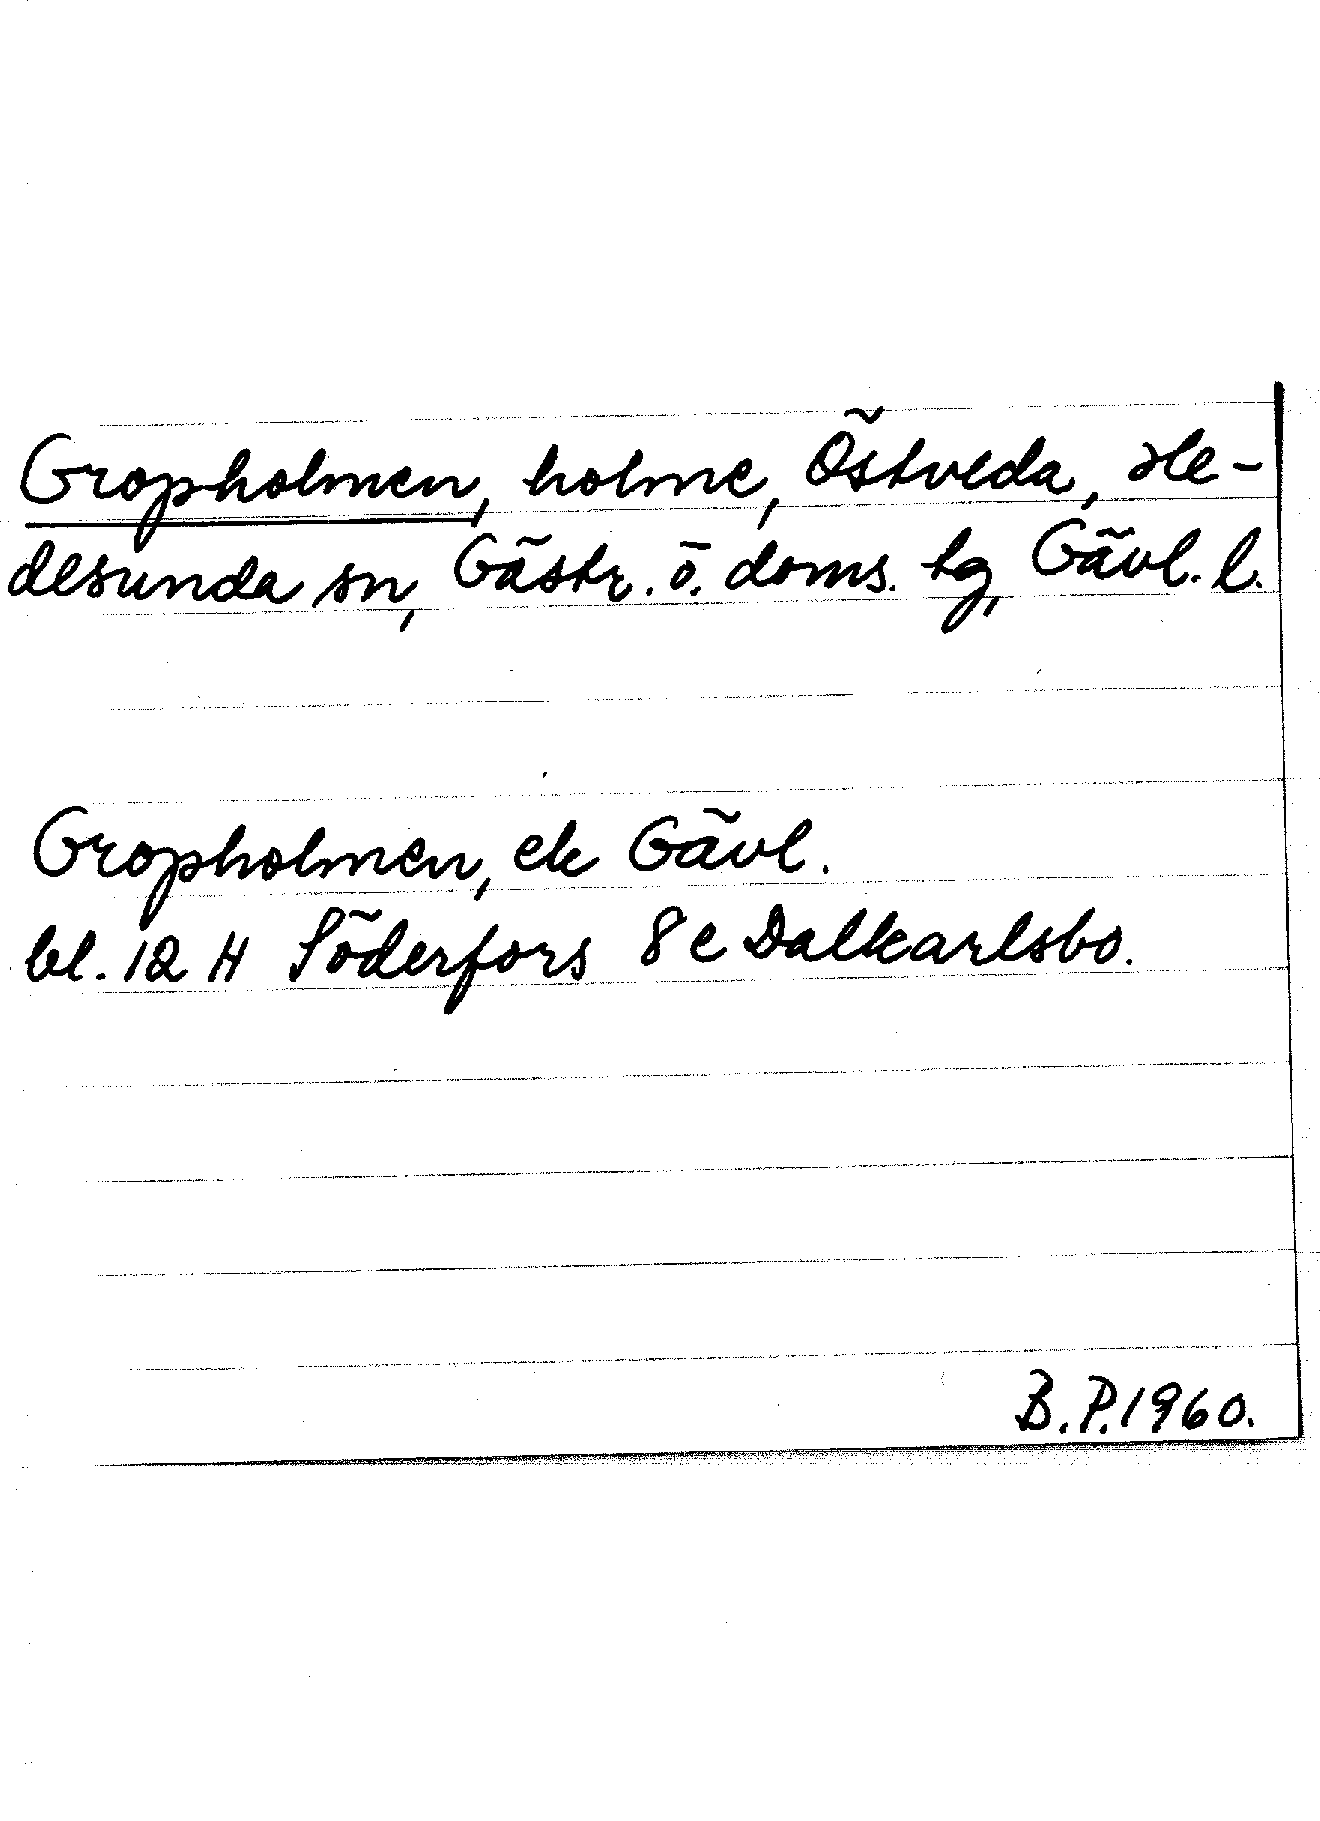 Gropholmen, holme, Östveda, He-
desunda sn, Gästr. ö. doms. tg, Gävl. l.
Gropholmen, ek Gävl.
bl. 12 H Söderfors 8 e Dalkarlsbo.
B.P. 1960.